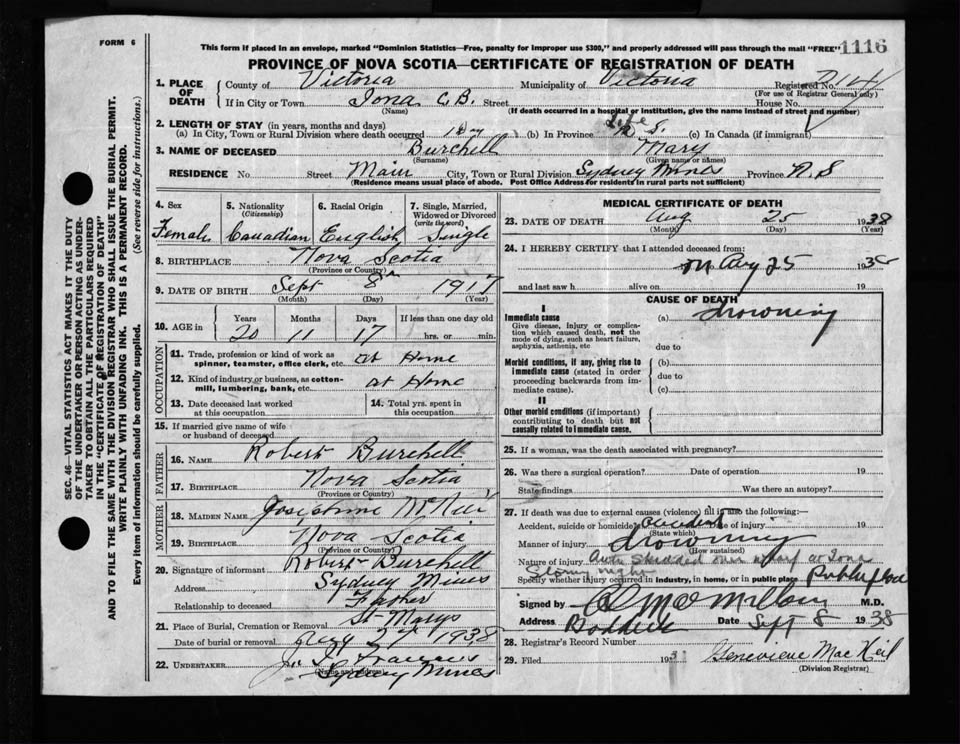 FORM 6
This form if placed in an envelope, marked "Dominion Statistics—Free, penalty for improper use $300," and properly addressed will pass through the mail "FREE" 1116
PROVINCE OF NOVA SCOTIA—CERTIFICATE OF REGISTRATION OF DEATH
1. PLACE OF DEATH
County of Victoria Municipality of Victoria Registered No.
(For use of Registrar General only)
If in City or Town Iona C.B. Street House No.
(Name) (If death occurred in a hospital or institution, give the name instead of street and number)
2. LENGTH OF STAY (in years, months and days)
(a) In City, Town or Rural Division where death occurred (b) In Province life (c) In Canada (if immigrant)
3. NAME OF DECEASED Burchell Mary
(Surname) (Given name or names)
RESIDENCE No. Street Main City, Town or Rural Division Sydney Mines Province N.S
(Residence means usual place of abode. Post Office Address for residents in rural parts not sufficient)
4. Sex 5. Nationality (Citizenship) 6. Racial Origin 7. Single, Married, Widowed or Divorced (write the word)
Female Canadian English Single
8. BIRTHPLACE Nova Scotia
(Province or Country)
9. DATE OF BIRTH Sept 8th 1917
(Month) (Day) (Year)
10. AGE in Years Months Days If less than one day old
20 11 17 hrs. or min.
OCCUPATION
11. Trade, profession or kind of work as spinner, teamster, office clerk, etc. at Home
12. Kind of industry or business, as cotton-mill, lumbering, bank, etc. at Home
13. Date deceased last worked at this occupation
14. Total yrs. spent in this occupation
15. If married give name of wife or husband of deceased
FATHER
16. NAME Robert Burchell
17. BIRTHPLACE Nova Scotia
(Province or Country)
MOTHER
18. MAIDEN NAME Josephine McNeil
19. BIRTHPLACE Nova Scotia
(Province or Country)
20. Signature of informant Robert Burchell
Address Sydney Mines
Relationship to deceased Father
21. Place of Burial, Cremation or Removal St Marys
Date of burial or removal Aug 27 1938
22. UNDERTAKER
(Name and address)
Sydney Mines
MEDICAL CERTIFICATE OF DEATH
23. DATE OF DEATH Aug 25 1938
(Month) (Day) (Year)
24. I HEREBY CERTIFY that I attended deceased from:
25 193
and last saw h alive on 19
CAUSE OF DEATH
I
Immediate cause (a) drowning
Give disease, injury or complication which caused death, not the mode of dying, such as heart failure, asphyxia, asthenia, etc
due to
Morbid conditions, if any, giving rise to immediate cause (stated in order proceeding backwards from immediate cause).
(b)
due to
(c)
II
Other morbid conditions (if important) contributing to death but not causally related to immediate cause.
25. If a woman, was the death associated with pregnancy?
26. Was there a surgical operation? Date of operation 19
State findings Was there an autopsy?
27. If death was due to external causes (violence) fill in also the following:—
Accident, suicide or homicide? accident Date of injury 19
(State which)
Manner of injury drowning
(How sustained)
Nature of injury Auto skidded over wharf at Iona
Stormy night
Specify whether injury occurred in industry, in home, or in public place Public place
Signed by M.D.
Address Baddeck Date Sept 8 1938
28. Registrar's Record Number
29. Filed 193 Genevieve MacNeil
(Division Registrar)
SEC. 46—VITAL STATISTICS ACT MAKES IT THE DUTY
OF THE UNDERTAKER OR PERSON ACTING AS UNDER-
TAKER TO OBTAIN ALL THE PARTICULARS REQUIRED
IN THE "CERTIFICATE OF REGISTRATION OF DEATH"
AND TO FILE THE SAME WITH THE DIVISION REGISTRAR WHO SHALL ISSUE THE BURIAL PERMIT.
WRITE PLAINLY WITH UNFADING INK. THIS IS A PERMANENT RECORD.
Every item of information should be carefully supplied. (See reverse side for instructions.)